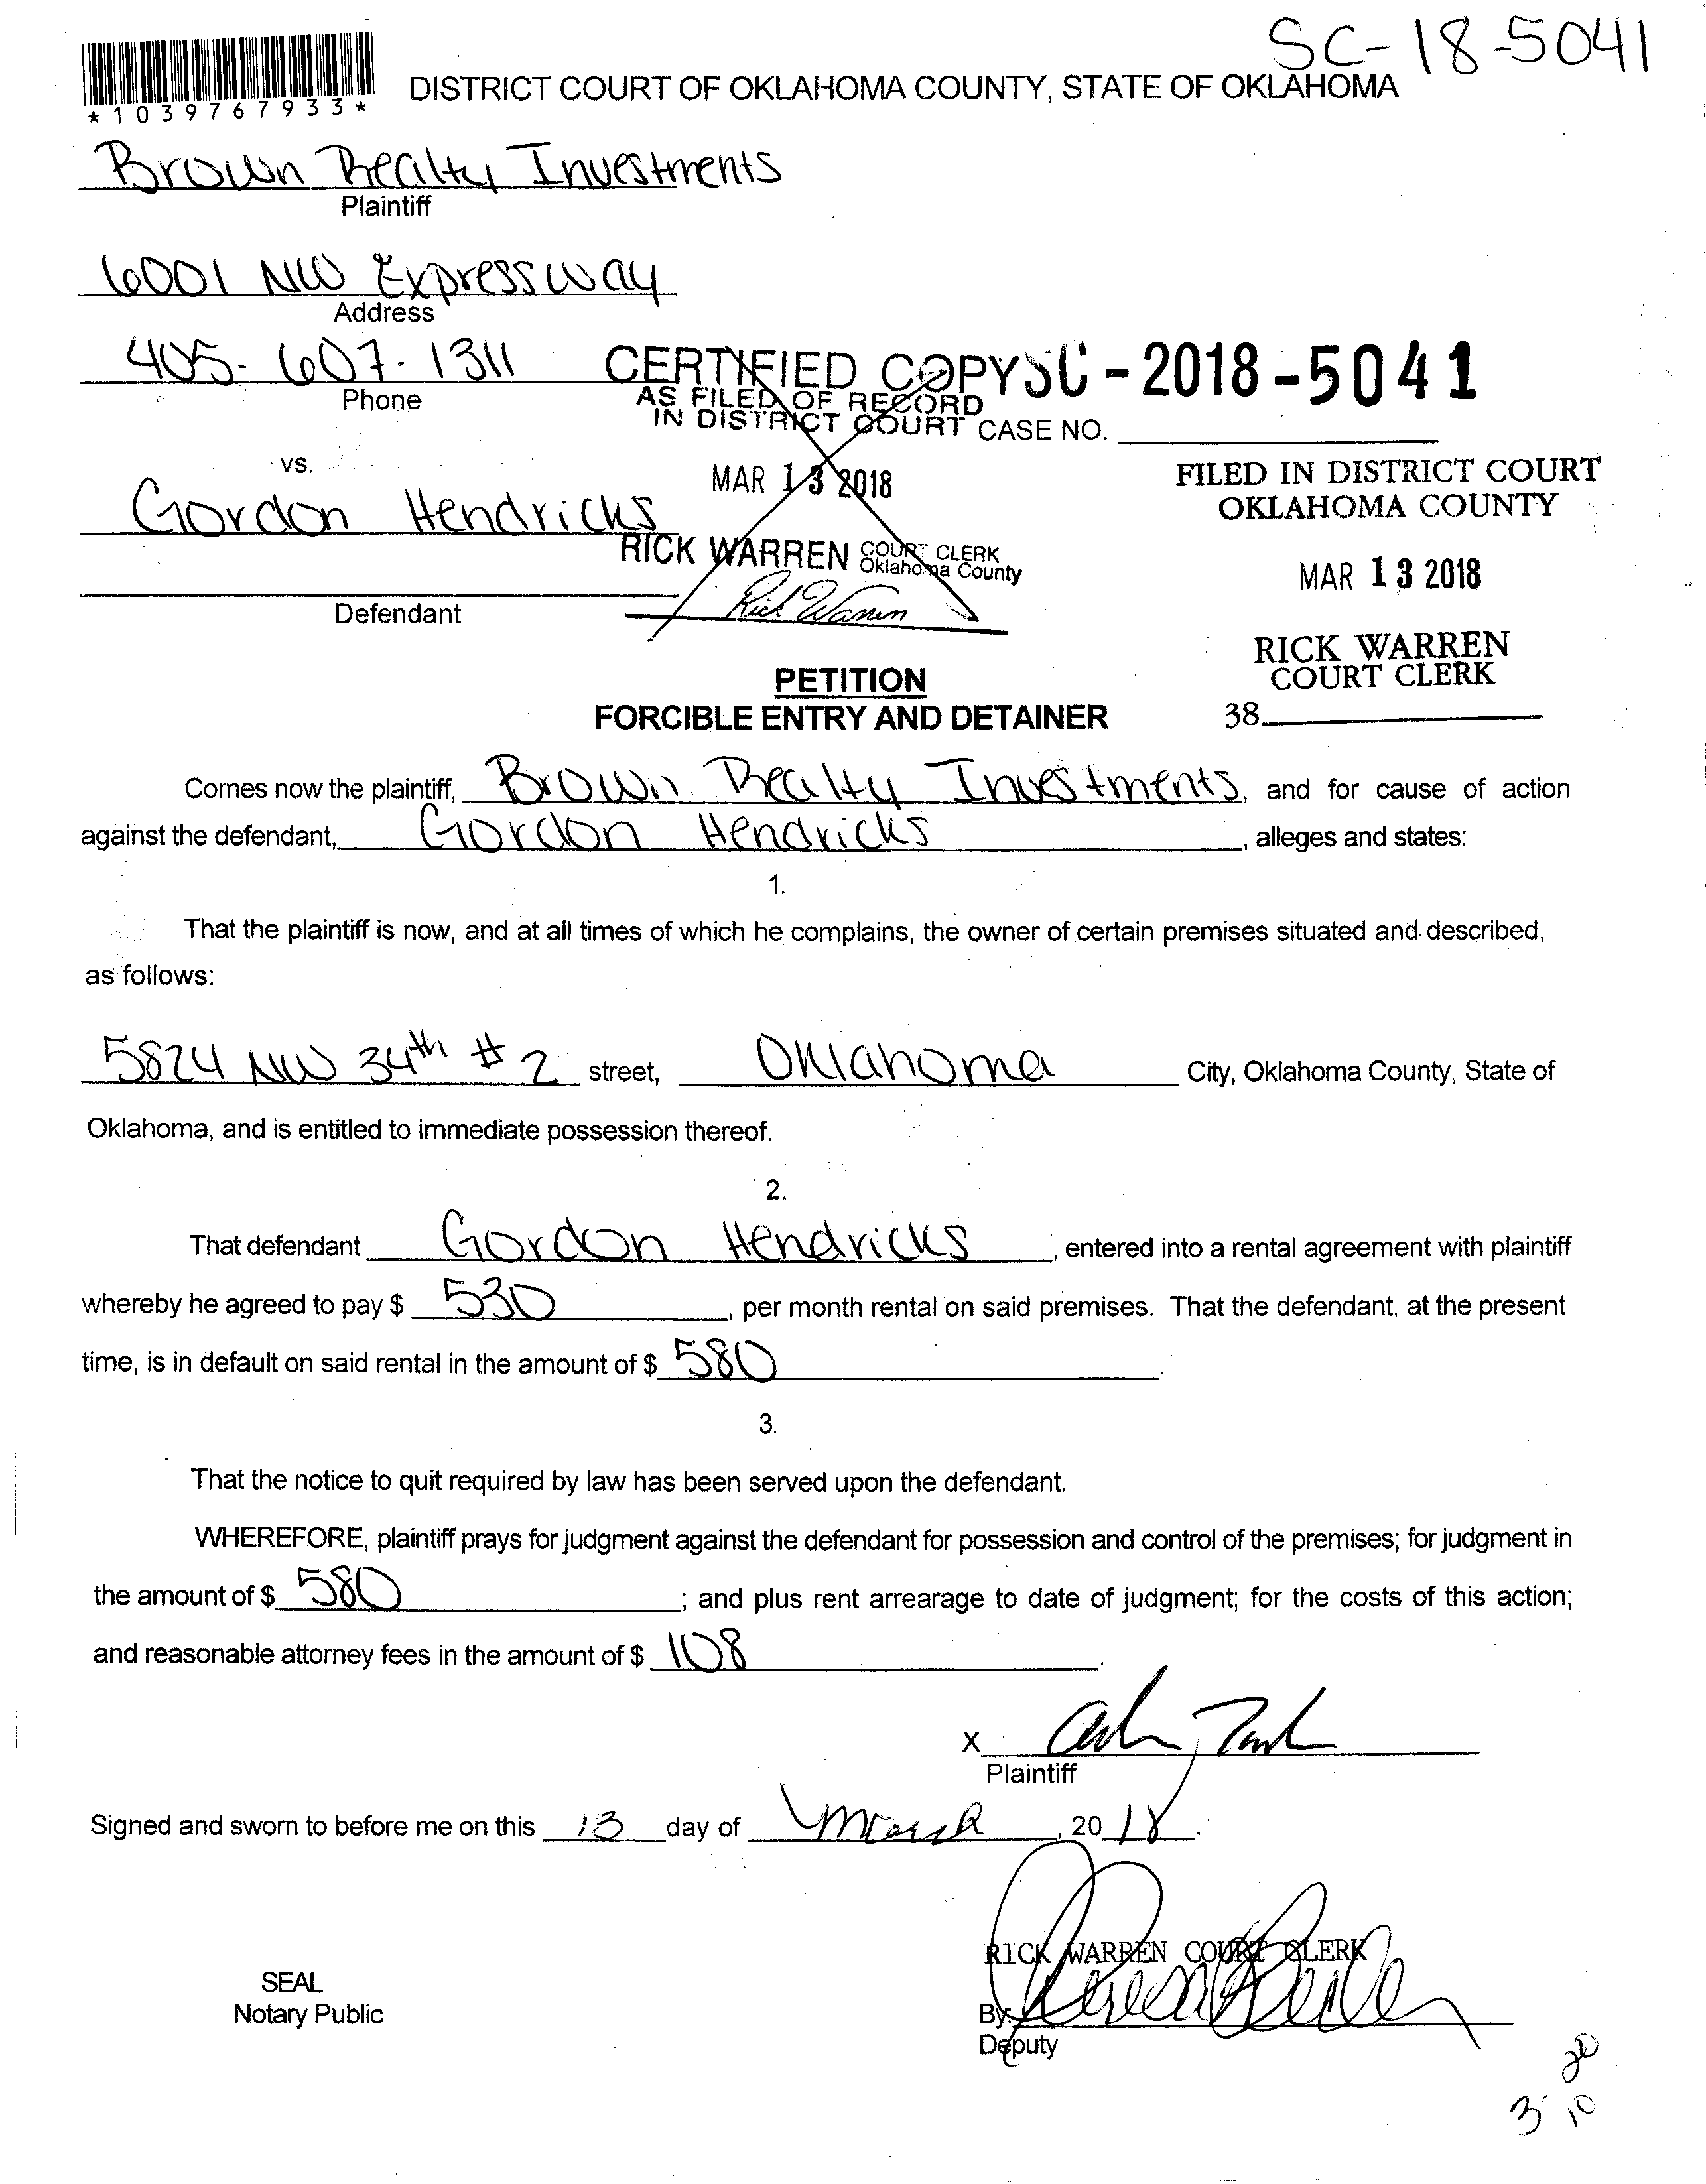 SC-18-5041
*1039767933*
DISTRICT COURT OF OKLAHOMA COUNTY, STATE OF OKLAHOMA
Brown Realty Investments
Plaintiff
6001 NW Expressway
Address
405-607-1311
Phone
CERTIFIED COPY
AS FILED OF RECORD
IN DISTRICT COURT
SC-2018-5041
CASE NO.
MAR 13 2018
RICK WARREN COURT CLERK
Oklahoma County
Rick Warren
FILED IN DISTRICT COURT
OKLAHOMA COUNTY
MAR 13 2018
RICK WARREN
COURT CLERK
38
vs.
Gordon Hendricks
Defendant
PETITION
FORCIBLE ENTRY AND DETAINER
Comes now the plaintiff, Brown Realty Investments, and for cause of action
against the defendant, Gordon Hendricks, alleges and states:
1.
That the plaintiff is now, and at all times of which he complains, the owner of certain premises situated and described,
as follows:
5824 NW 34th #2 street, Oklahoma City, Oklahoma County, State of
Oklahoma, and is entitled to immediate possession thereof.
2.
That defendant Gordon Hendricks, entered into a rental agreement with plaintiff
whereby he agreed to pay $ 530, per month rental on said premises. That the defendant, at the present
time, is in default on said rental in the amount of $ 580.
3.
That the notice to quit required by law has been served upon the defendant.
WHEREFORE, plaintiff prays for judgment against the defendant for possession and control of the premises; for judgment in
the amount of $ 580; and plus rent arrearage to date of judgment; for the costs of this action;
and reasonable attorney fees in the amount of $ 108.
X
Plaintiff
Signed and sworn to before me on this 13 day of March, 2018.
RICK WARREN COURT CLERK
SEAL
Notary Public
By:
Deputy
20
3 10